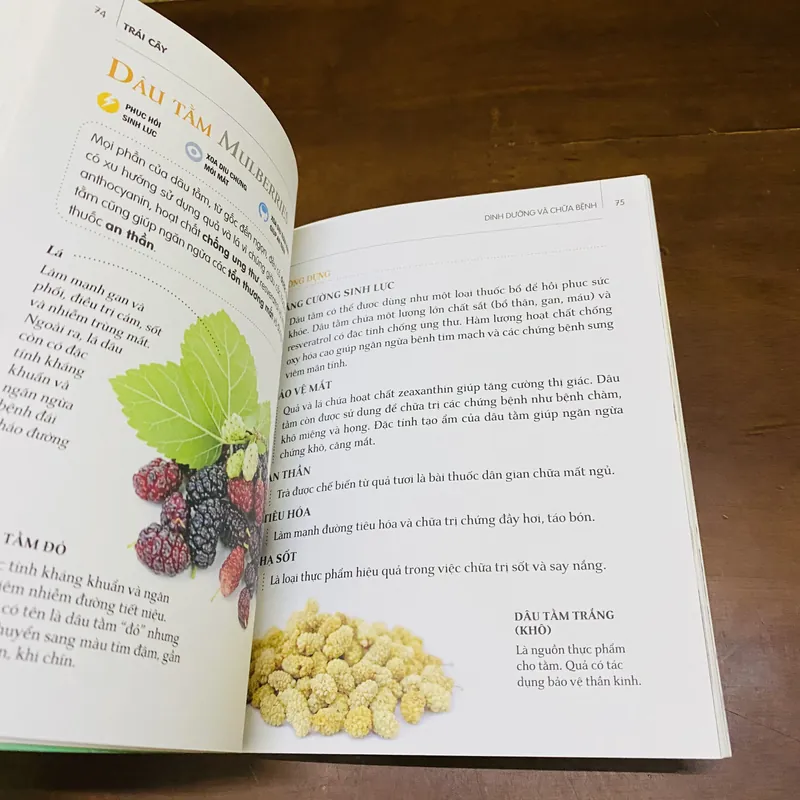 74
TRÁI CÂY
DÂU TẰM MULBERRIES
PHỤC HỒI
SINH LỰC
XOA DỊU CHỨNG
MỎI MẮT
Mọi phần của dâu tằm, từ gốc đến ngọn, đều
có xu hướng sử dụng quả và lá vì chúng giàu
anthocyanin, hoạt chất chống ung thư
tằm cũng giúp ngăn ngừa các tổn thương mắt
thuốc an thần.
Lá
Làm mạnh gan và
phổi, điều trị cảm, sốt
và nhiễm trùng mắt.
Ngoài ra, lá dâu
còn có đặc
tính kháng
khuẩn và
ngăn ngừa
bệnh đái
tháo đường
TẰM ĐỎ
tính kháng khuẩn và ngăn
nhiễm đường tiết niệu.
có tên là dâu tằm "đỏ" nhưng
chuyển sang màu tím đậm, gần
khi chín.
DINH DƯỠNG VÀ CHỮA BỆNH
75
CÔNG DỤNG
TĂNG CƯỜNG SINH LỰC
Dâu tằm có thể được dùng như một loại thuốc bổ để hồi phục sức
khỏe. Dâu tằm chứa một lượng lớn chất sắt (bổ thận, gan, máu) và
resveratrol có đặc tính chống ung thư. Hàm lượng hoạt chất chống
oxy hóa cao giúp ngăn ngừa bệnh tim mạch và các chứng bệnh sưng
viêm mãn tính.
BẢO VỆ MẮT
Quả và lá chứa hoạt chất zeaxanthin giúp tăng cường thị giác. Dâu
tằm còn được sử dụng để chữa trị các chứng bệnh như bệnh chàm,
khô miệng và họng. Đặc tính tạo ẩm của dâu tằm giúp ngăn ngừa
chứng khô, căng mắt.
AN THẦN
Trà được chế biến từ quả tươi là bài thuốc dân gian chữa mất ngủ.
TIÊU HÓA
Làm mạnh đường tiêu hóa và chữa trị chứng đầy hơi, táo bón.
HẠ SỐT
Là loại thực phẩm hiệu quả trong việc chữa trị sốt và say nắng.
DÂU TẰM TRẮNG
(KHÔ)
Là nguồn thực phẩm
cho tằm. Quả có tác
dụng bảo vệ thần kinh.